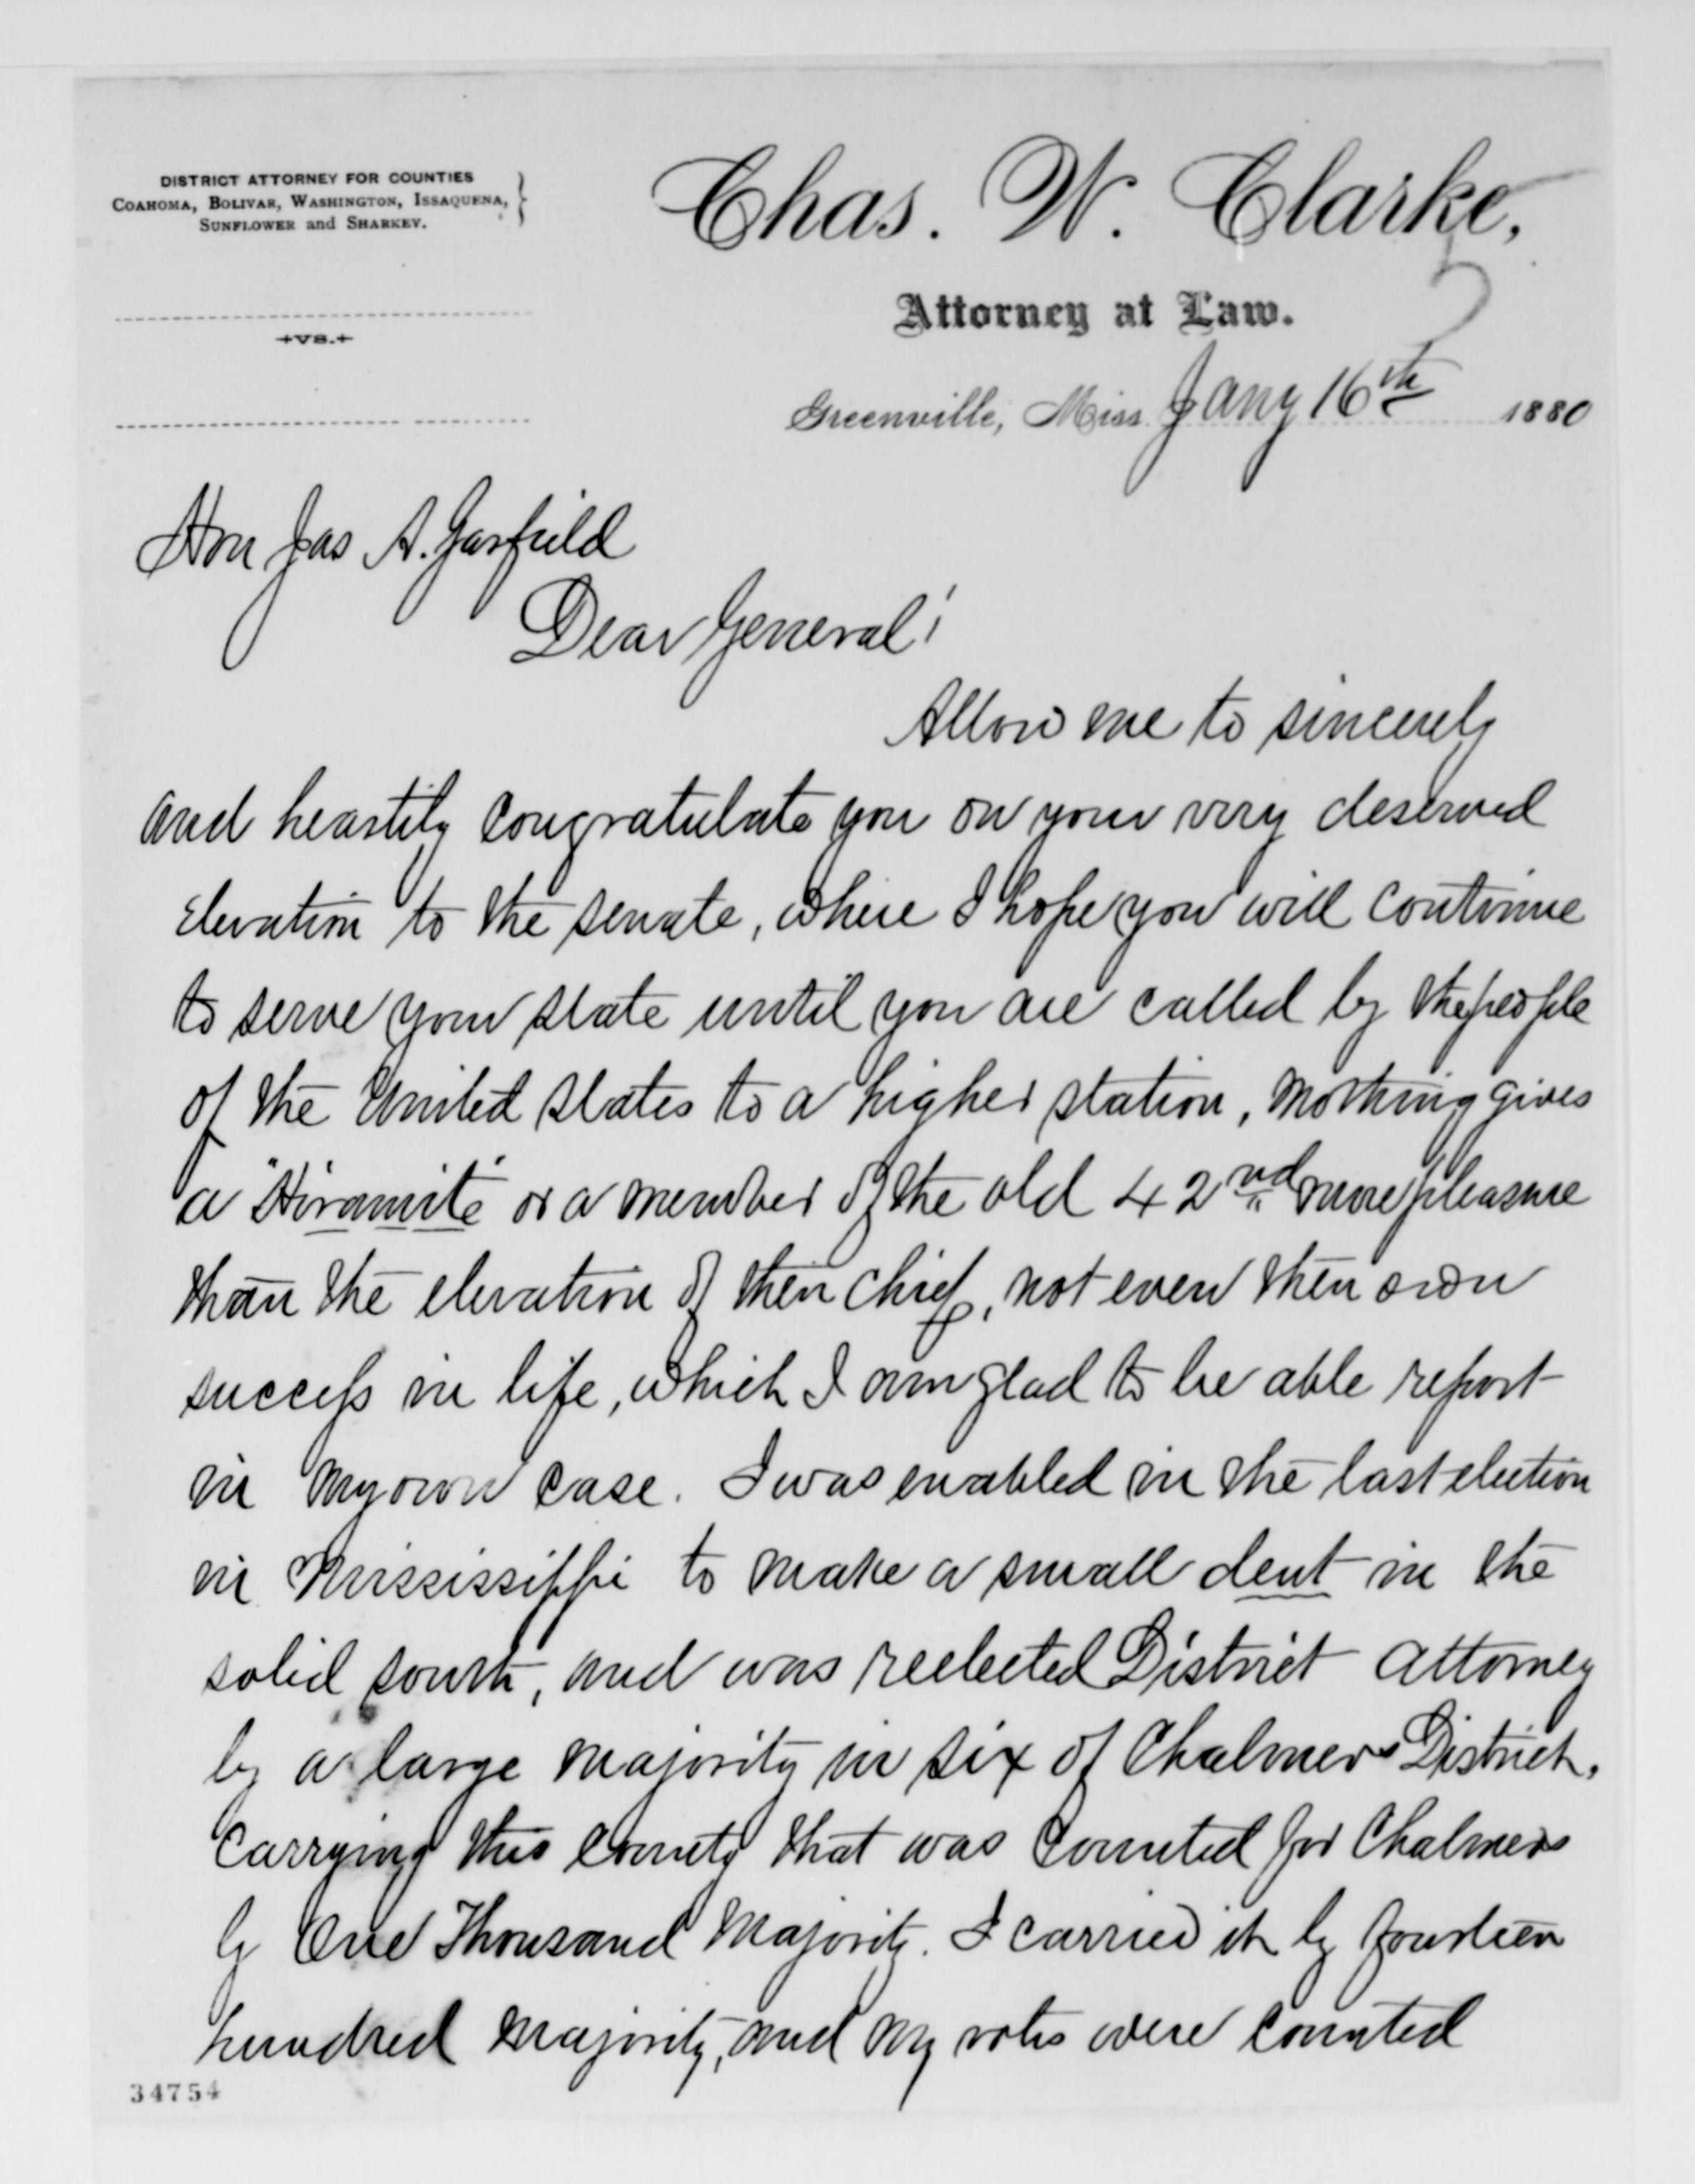 DISTRICT ATTORNEY FOR COUNTIES
COAHOMA, BOLIVAR, WASHINGTON, ISSAQUENA,
SUNFLOWER and SHARKEY.
vs.
Chas. W. Clarke,
Attorney at Law.
5
Greenville, Miss. Jany 16th 1880
Hon Jas A. Garfield
Dear General!
Allow me to sincerely
and heartily congratulate you on your very deserved
elevation to the senate, where I hope you will continue
to serve your state until you are called by the people
of the United States to a higher station, nothing gives
a "Hiramite" or a member of the old 42nd more pleasure
than the elevation of their chief, not even their own
success in life, which I am glad to be able report
in my own case. I was enabled in the last election
in Mississippi to make a small dent in the
solid south, and was reelected District Attorney
by a large majority in six of Chalmers District,
carrying this county that was counted for Chalmers
by One Thousand Majority. I carried it by fourteen
hundred majority, and my votes were counted
34754